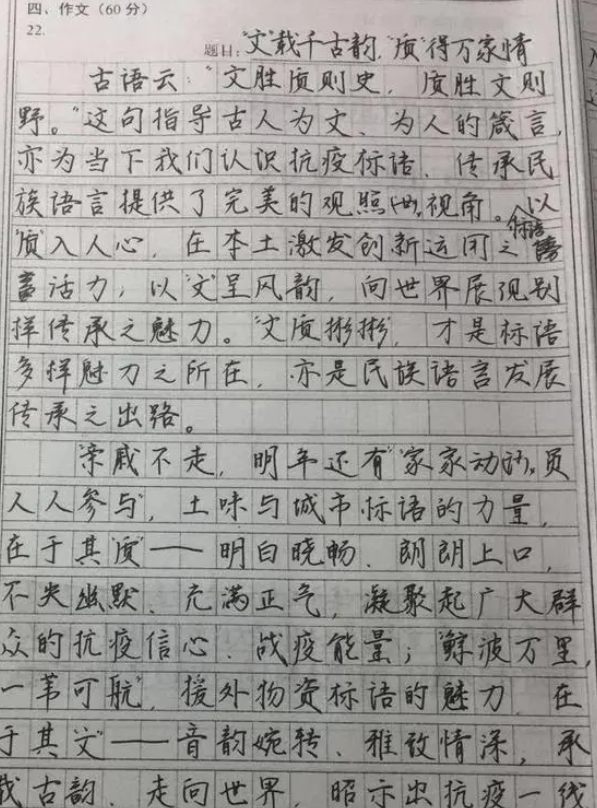 四、作文（60分）
22.
题目："文"载千古韵，"质"得万家情
古语云："文胜质则史，质胜文则
野。"这句指导古人为文、为人的箴言，
亦为当下我们认识抗疫标语、传承民
族语言提供了完美的观照视角。以
"质"入人心，在本土激发创新运用之标语
活力；以"文"呈风韵，向世界展现别
样传承之魅力。"文质彬彬"，才是标语
多样魅力之所在，亦是民族语言发展
传承之出路。
"亲戚不走，明年还有""家家动员，
人人参与"，土味与城市标语的力量，
在于其"质"——明白晓畅、朗朗上口，
不失幽默、充满正气，凝聚起广大群
众的抗疫信心、战疫能量；"鲸波万里，
一苇可航"，援外物资标语的魅力，在
于其"文"——音韵婉转、雅致情深，承
载古韵、走向世界，昭示出抗疫一线